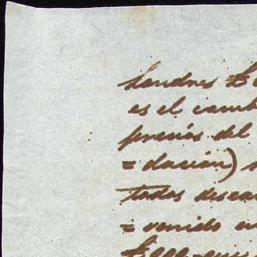 Londres
es el camb
precios del
= dacion)
todos desea
= venido en